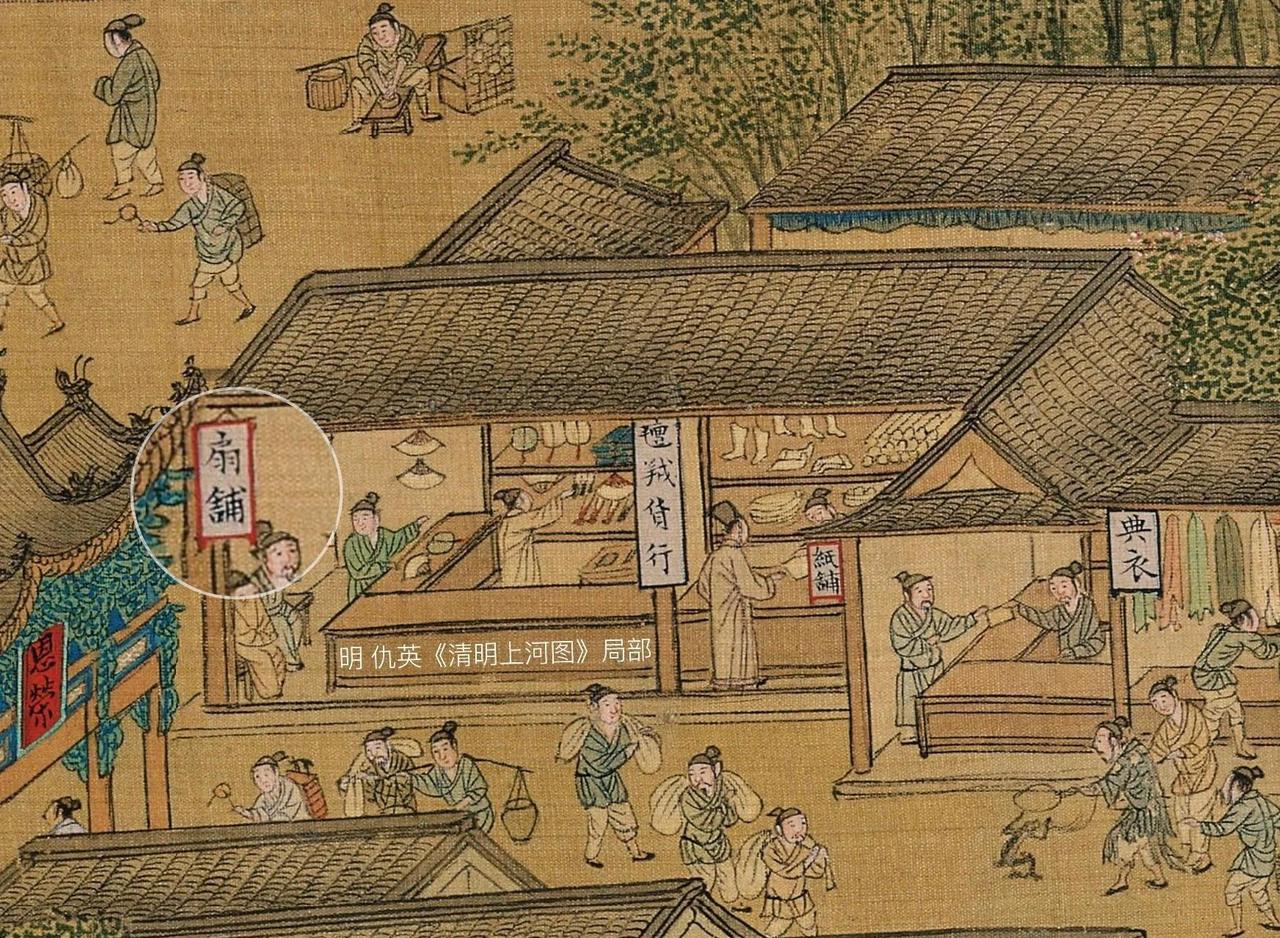 扇舖
羢貨行
紙舖
典衣
恩榮
明 仇英《清明上河图》局部